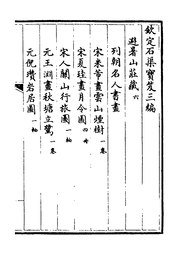 欽定石渠寶笈三編
避暑山莊藏六
列朝名人書畫
宋米芾畫雲山烟樹一卷
宋夏珪畫月令圖四冊
宋人關山行旅圖一軸
元王淵畫秋塘立鷺一卷
元倪瓚岩居圖一軸